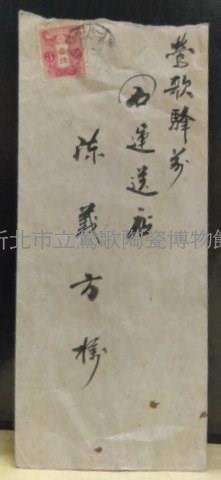 鶯歌驛前
力運送店
陳義方樣
新北市立鶯歌陶瓷博物館